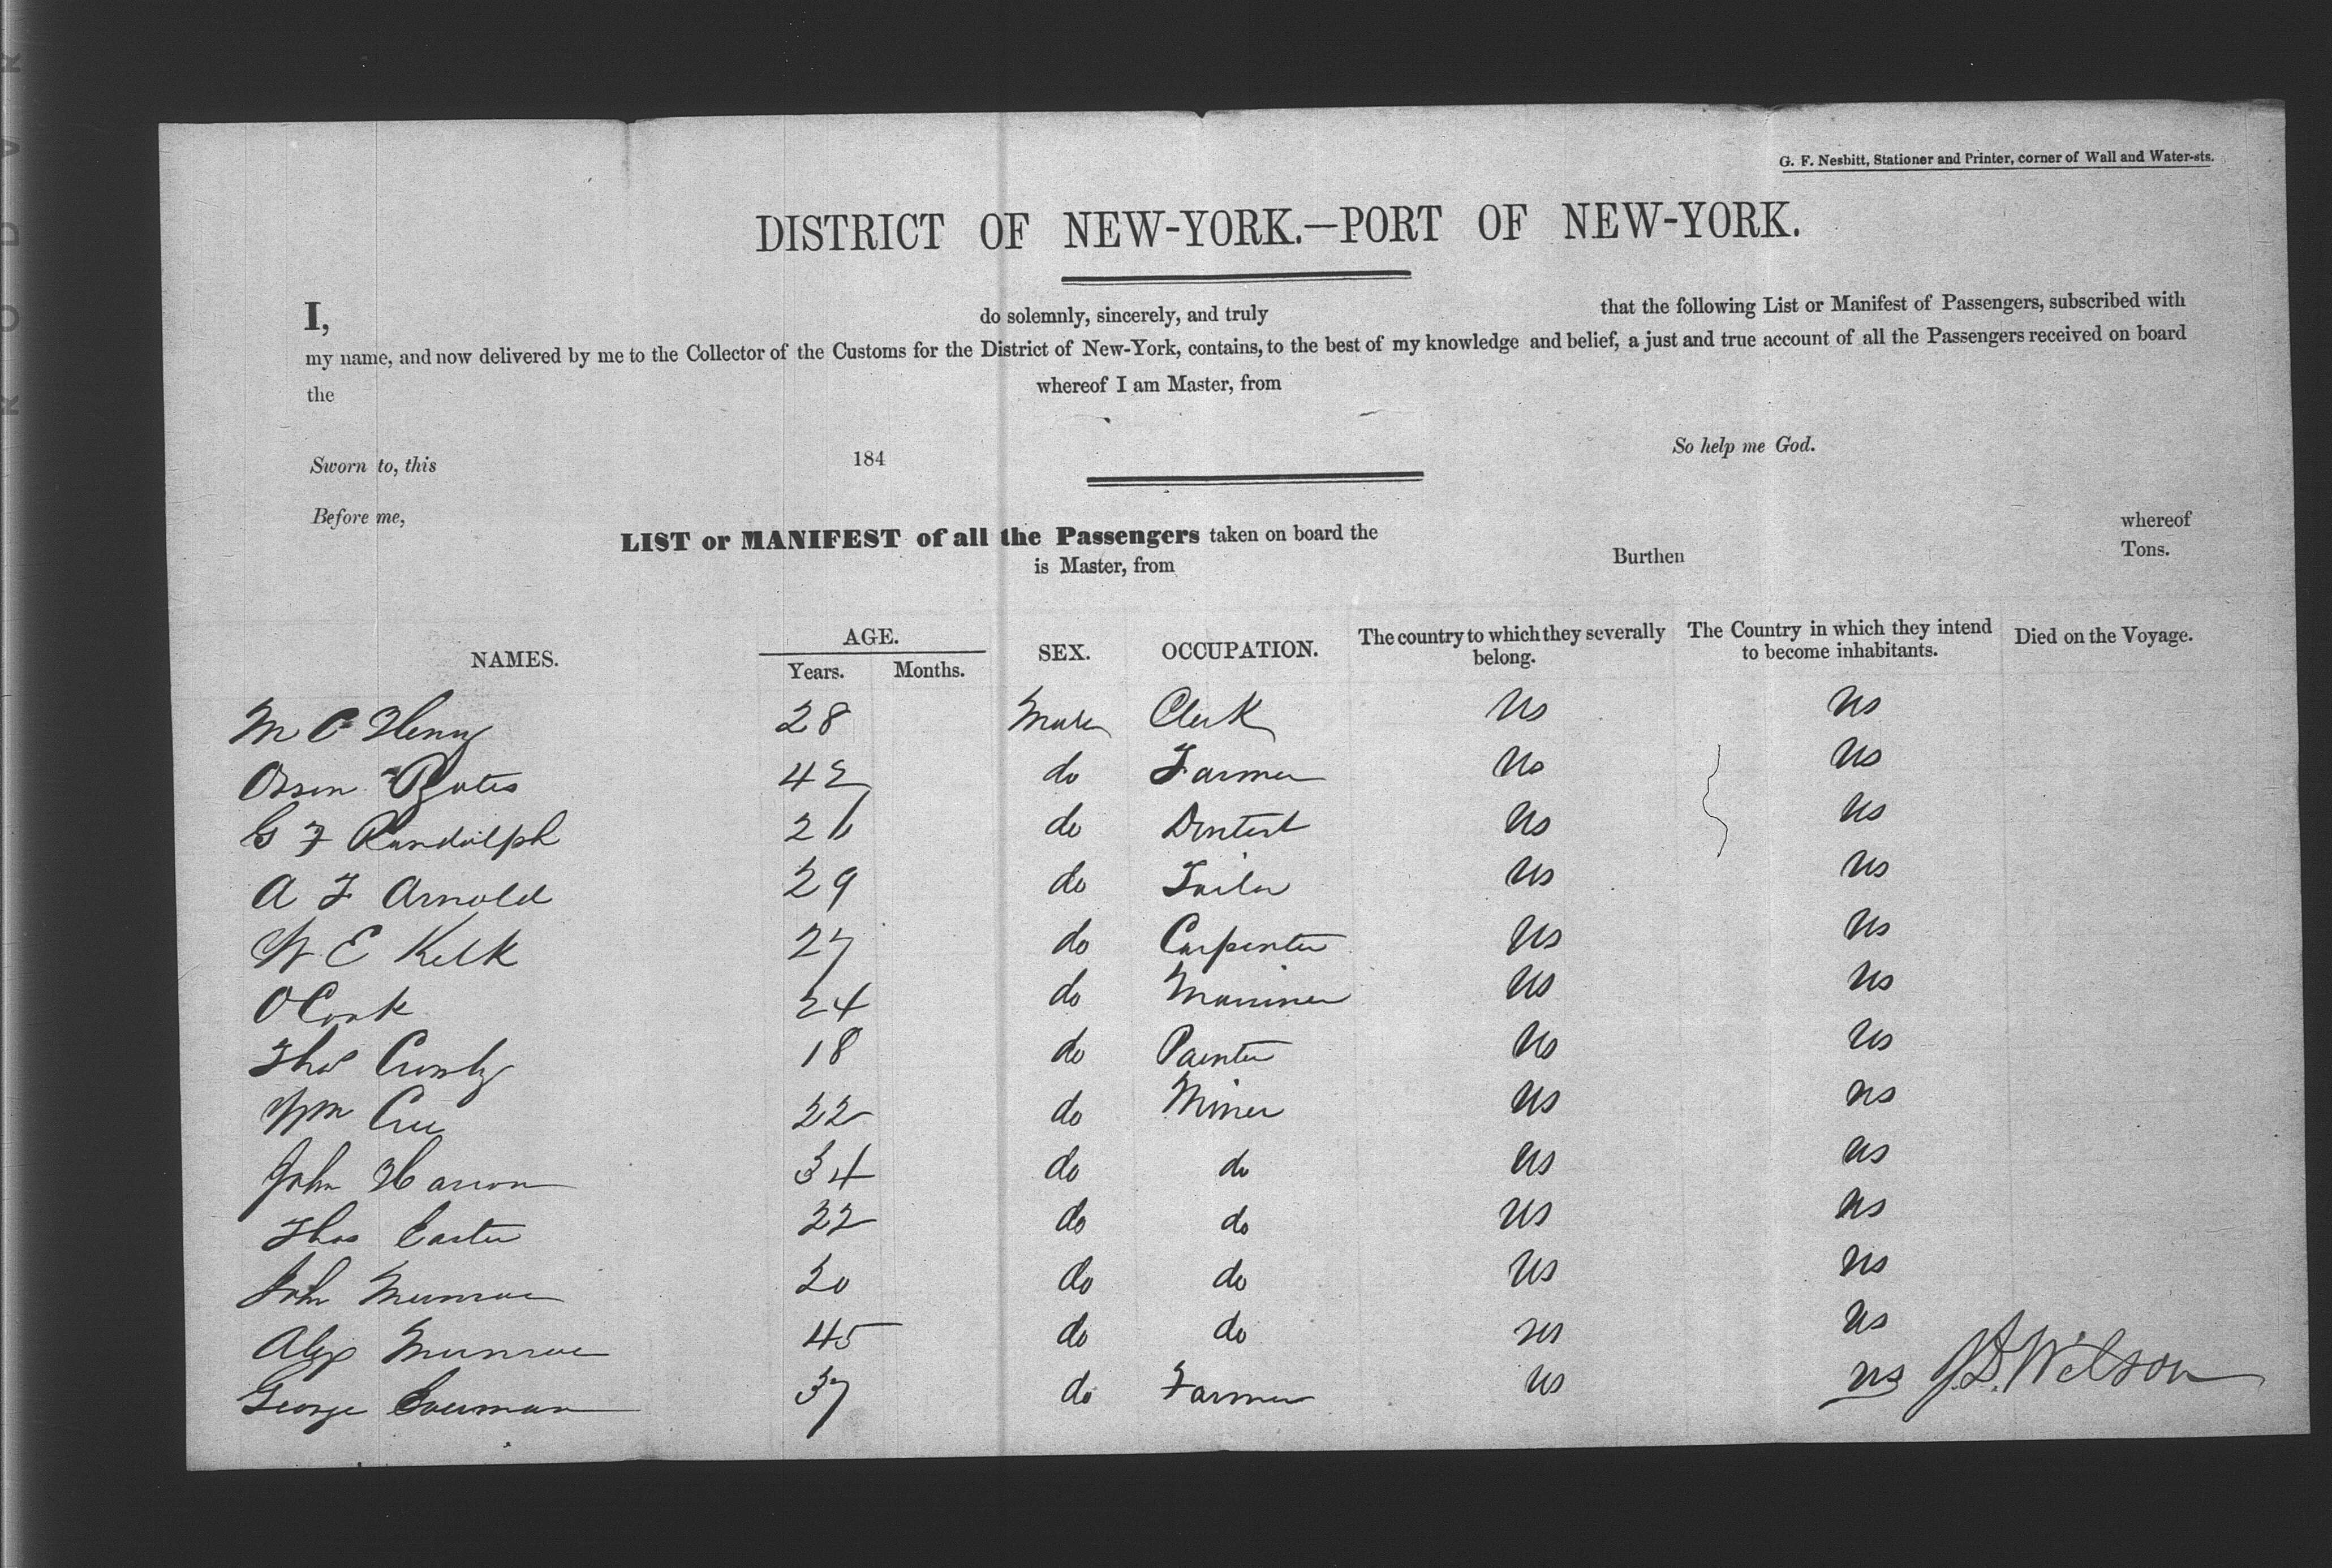 G. F. Nesbitt, Stationer and Printer, corner of Wall and Water-sts.
DISTRICT OF NEW-YORK.—PORT OF NEW-YORK.
I, do solemnly, sincerely, and truly that the following List or Manifest of Passengers, subscribed with
my name, and now delivered by me to the Collector of the Customs for the District of New-York, contains, to the best of my knowledge and belief, a just and true account of all the Passengers received on board
the whereof I am Master, from
So help me God.
Sworn to, this 184
Before me,
LIST or MANIFEST of all the Passengers taken on board the whereof
is Master, from Burthen Tons.
NAMES. AGE. Years. Months. SEX. OCCUPATION. The country to which they severally belong. The Country in which they intend to become inhabitants. Died on the Voyage.
M C Henry 28 Male Clerk US US
Orson Bates 42 do Farmer US US
G F Randolph 26 do Dentist US US
A F Arnold 29 do Tailor US US
W E Kelk 27 do Carpenter US US
O Cook 24 do Mariner US US
Thos 18 do Painter US US
Wm 22 do Miner US US
John 34 do do US US
Thos Easter 22 do do US US
John Munroe 20 do do US US
Alex Munroe 45 do do US US
George 37 do Farmer US US J.D. Wilson